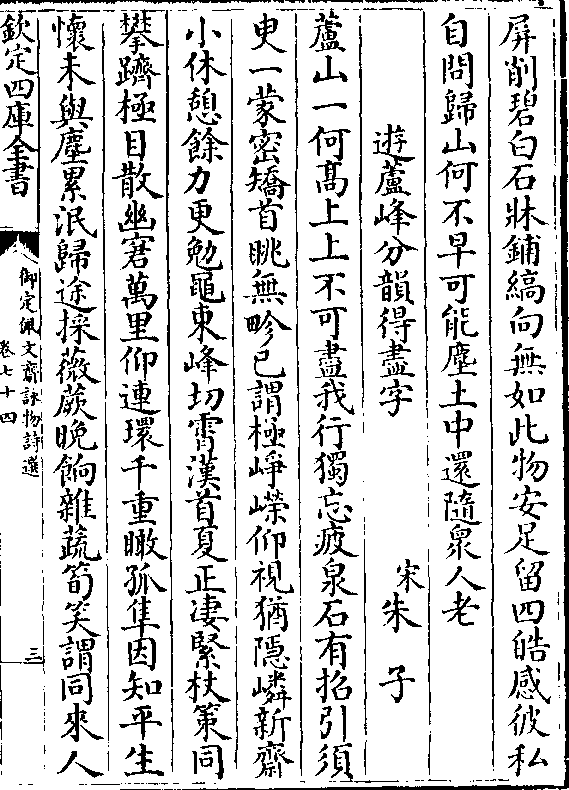 屏削碧白石牀鋪縞向無如此物安足留四皓感彼私
自問歸山何不早可能塵土中還隨衆人老
遊蘆峰分韻得盡字　宋朱子
蘆山一何髙上上不可盡我行獨忘疲泉石有招引須
臾一蒙密矯首眺無畛已謂極崢嶸仰視猶隱嶙新齋
小休憩餘力更勉黽東峰切霄漢首夏正凄緊杖策同
攀躋極目散幽窘萬里仰連環千重瞰孤隼因知平生
懷未與塵累泯歸途採薇蕨晚餉雜蔬筍笑謂同來人
欽定四庫全書
御定佩文齋詠物詩選
卷七十四
三